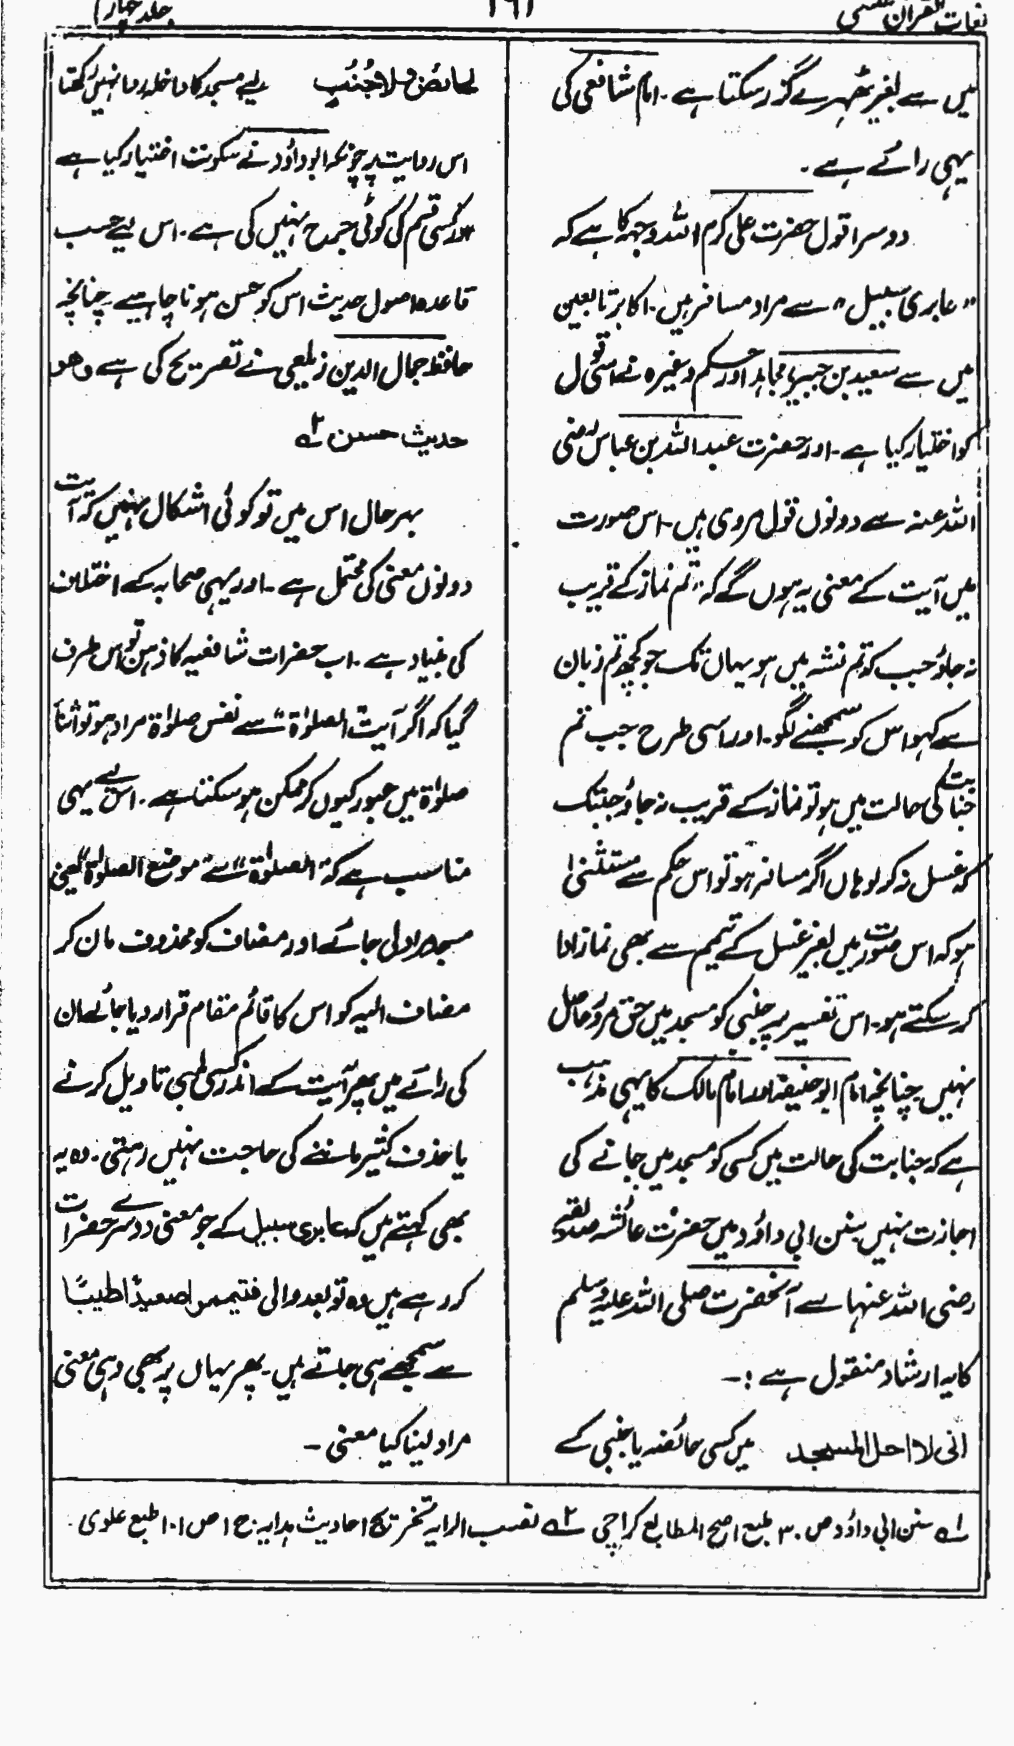 جلد چہارم
۱۶۱
لغات القرآن
میں سے بغیر ٹھہرے گزر سکتا ہے۔ امام شافعی کی
یہی رائے ہے۔
دوسرا قول حضرت علی کرم اللہ وجہہ کا ہے کہ
"عابری سبیل" سے مراد مسافر ہیں۔ اکابر تابعین
میں سے سعید بن جبیر، مجاہد اور حکم وغیرہ نے اسی قول
کو اختیار کیا ہے۔ اور حضرت عبداللہ بن عباس رضی
اللہ عنہ سے دونوں قول مروی ہیں۔ اس صورت
میں آیت کے معنی یہ ہوں گے کہ "تم نماز کے قریب
نہ جاؤ جب کہ تم نشہ میں ہو یہاں تک جو کچھ تم زبان
سے کہو اس کو سمجھنے لگو۔ اور اسی طرح جب تم
جنابت کی حالت میں ہو تو نماز کے قریب نہ جاؤ جبتک
کہ غسل نہ کر لو ہاں اگر مسافر ہو تو اس حکم سے مستثنیٰ
ہو کہ اس صورت میں بغیر غسل کے تیمم سے بھی نماز ادا
کر سکتے ہو۔ اس تفسیر پر جنبی کو مسجد میں حق مرور حاصل
نہیں چنانچہ امام ابو حنیفہ اور امام مالک کا یہی مذہب
ہے کہ جنابت کی حالت میں کسی کو مسجد میں جانے کی
اجازت نہیں سنن ابی داؤد میں حضرت عائشہ صدیقہ
رضی اللہ عنہا سے آنحضرت صلی اللہ علیہ وسلم
کا یہ ارشاد منقول ہے :۔
انی لا احل المسجد میں کسی حائضہ یا جنبی کے
لحائض ولا جُنُبٍ لیے مسجد کا داخلہ روا نہیں رکھتا
اس روایت پر چونکہ ابو داؤد نے سکوت اختیار کیا ہے
اور کسی قسم کی کوئی جرح نہیں کی ہے۔ اس لیے حسب
قاعدہ اصول حدیث اس کو حسن ہونا چاہیے چنانچہ
حافظ جمال الدین زیلعی نے تصریح کی ہے وھو
حدیث حسن ۲ے
بہرحال اس میں تو کوئی اشکال نہیں کہ آیت
دونوں معنی کی محتمل ہے۔ اور یہی صحابہ کے اختلاف
کی بنیاد ہے۔ اب حضرات شافعیہ کا ذہن تو اس طرف
گیا کہ اگر آیت "الصلوٰۃ" سے نفس صلوٰۃ مراد ہو تو اثناً
صلوٰۃ میں عبور کیوں کر ممکن ہو سکتا ہے۔ اس لیے یہی
مناسب ہے کہ "الصلوٰۃ" سے موضع الصلوٰۃ یعنی
مسجد مراد لی جائے اور مضاف کو محذوف مان کر
مضاف الیہ کو اس کا قائم مقام قرار دیا جائے ان
کی رائے میں پھر آیت کے اندر کسی لمبی تاویل کرنے
یا حذف کثیر ماننے کی حاجت نہیں رہتی۔ وہ یہ
بھی کہتے ہیں کہ عابری سبیل کے جو معنی دوسرے حضرات
کر رہے ہیں وہ تو بعد والی فتیمموا صعیدًا طیبًا
سے سمجھے ہی جاتے ہیں۔ پھر یہاں پر بھی وہی معنی
مراد لینا کیا معنی۔
۱ے سنن ابی داؤد ص ۳۰ طبع اصح المطابع کراچی ۲ے نصب الرایہ تخریج احادیث ہدایہ ج ۱ ص ۱۰۱ طبع علوی۔